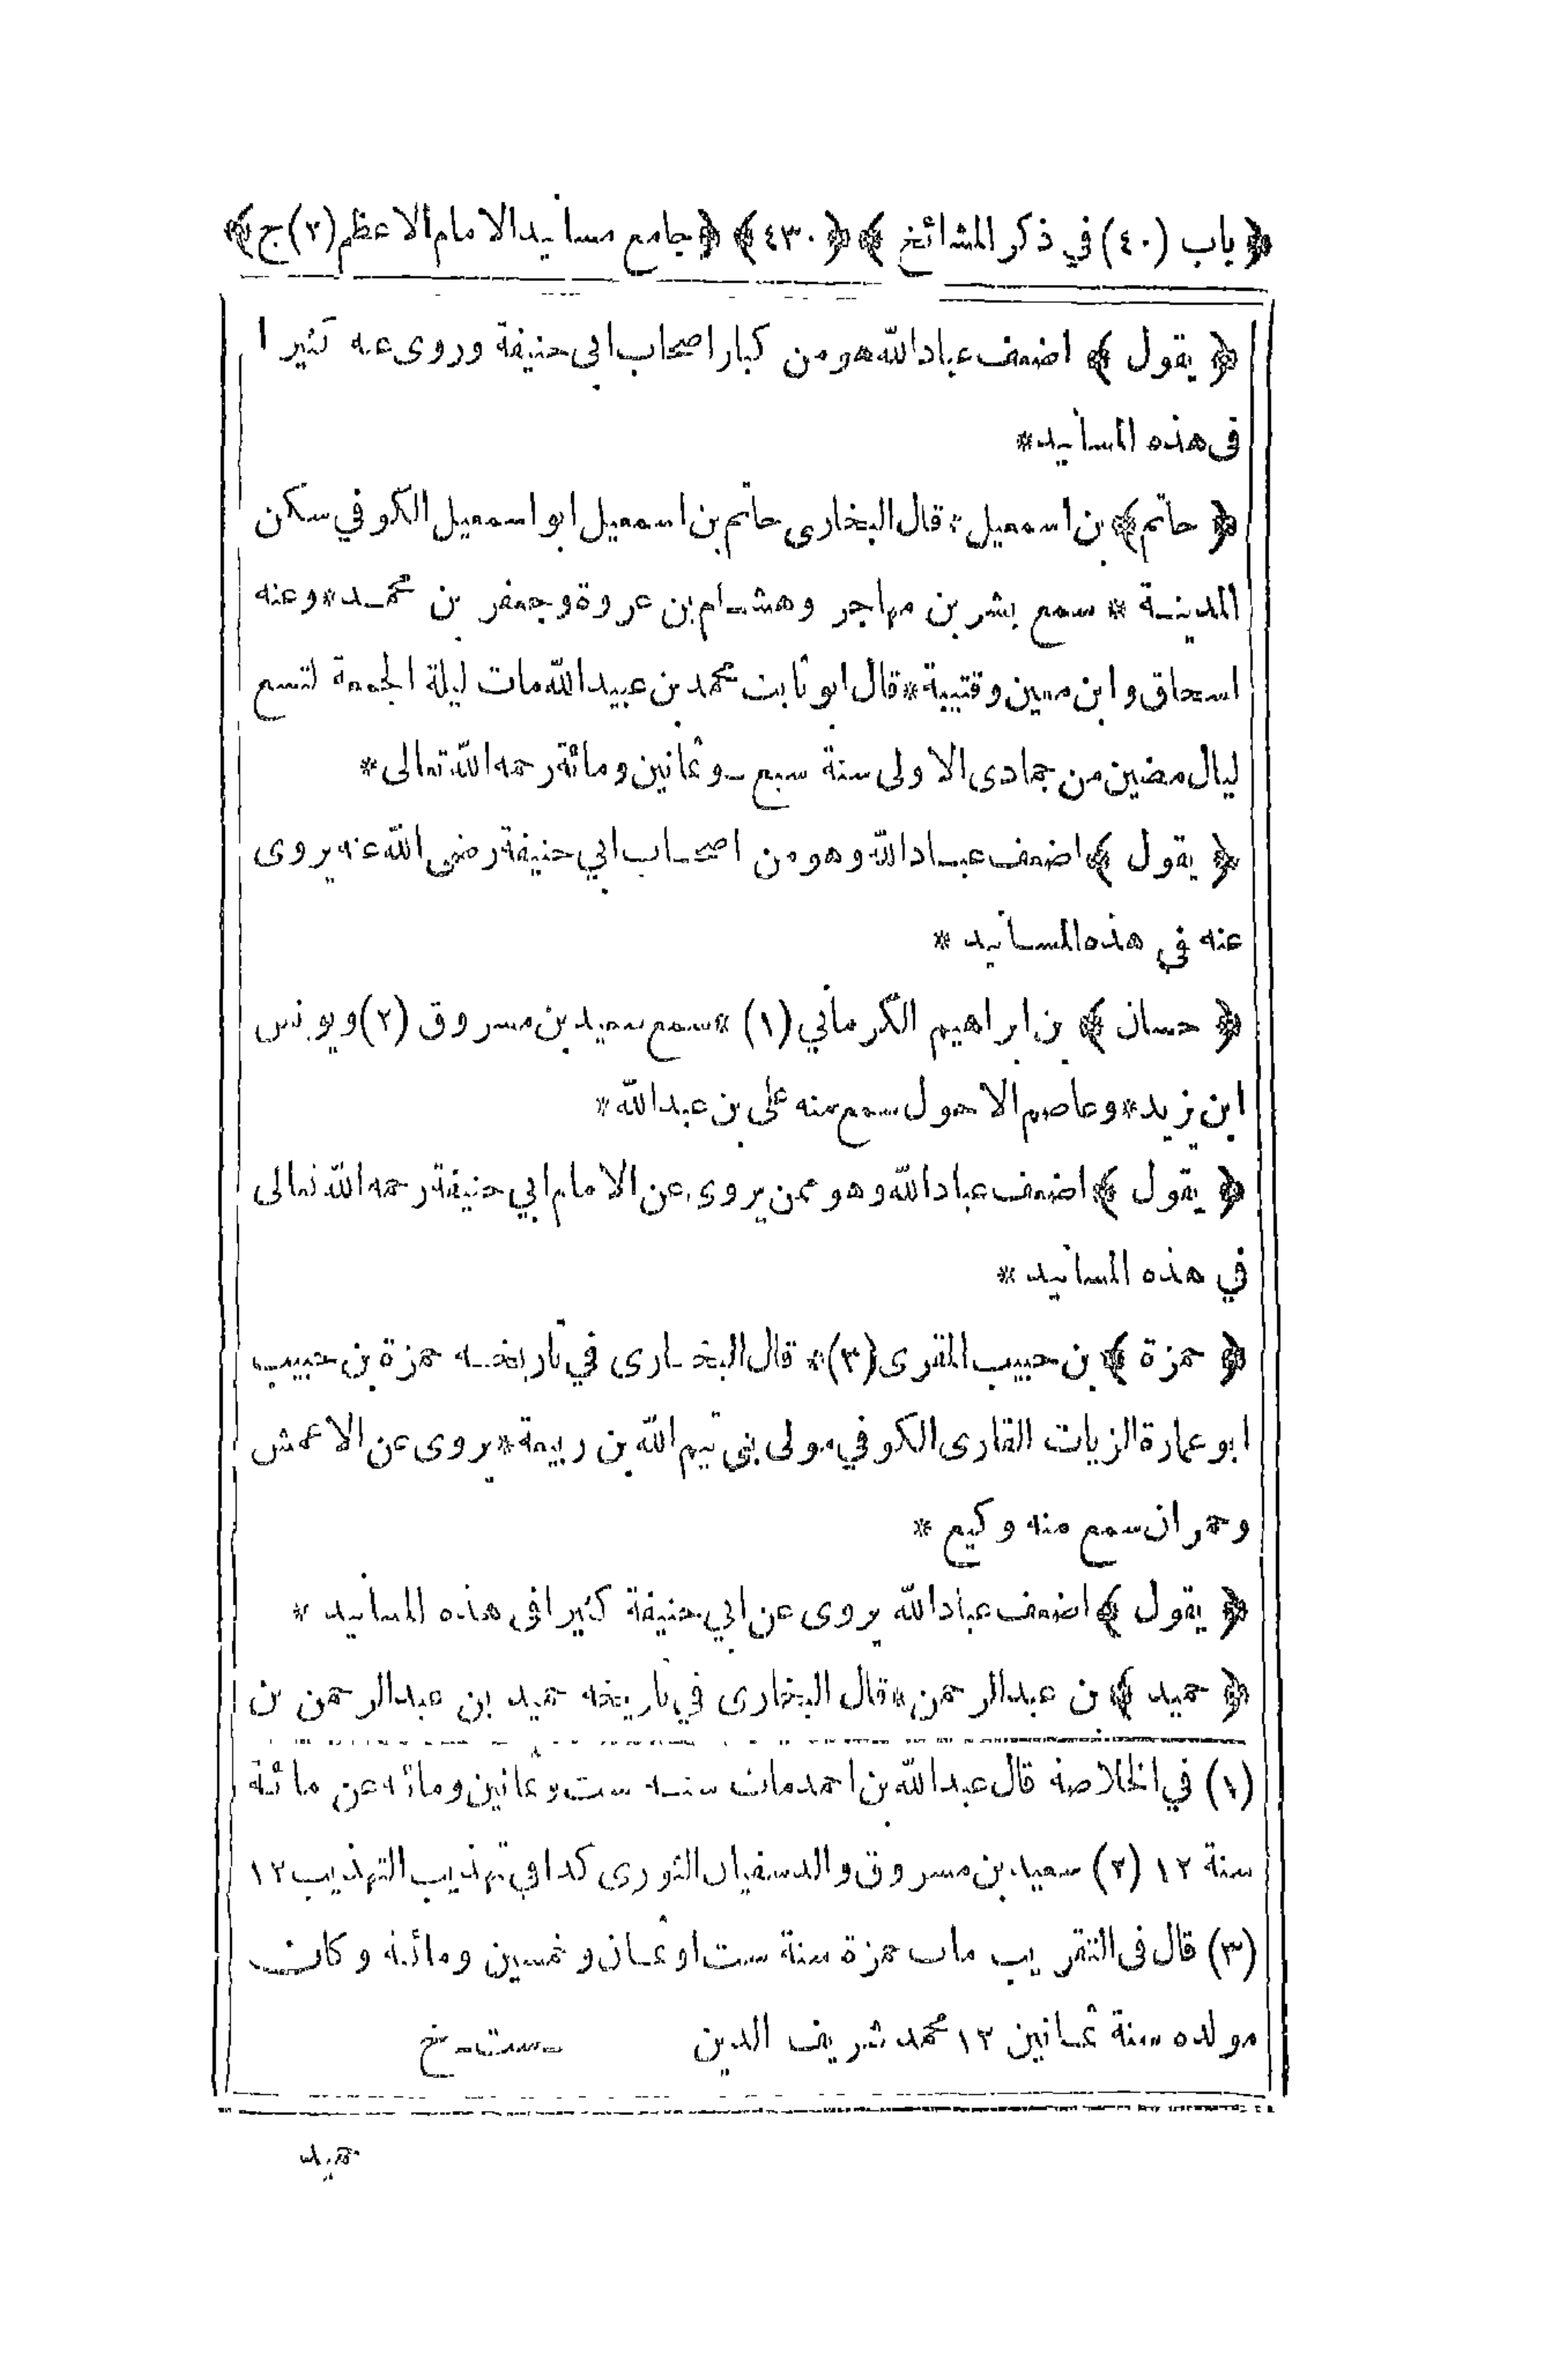 ﴿ باب (٤٠) في ذكر المشائخ ﴾ ﴿ ٤٣٠ ﴾ ﴿ جامع مسانيد الامام الاعظم (٢) ج ﴾
﴿ يقول ﴾ اضعف عباد الله هو من كبار اصحاب ابى حنيفة وروى عنه كثيرا
فى هذه المسانيد *
﴿ حاتم ﴾ بن اسمعيل * قال البخارى حاتم بن اسمعيل ابو اسمعيل الكوفي سكن
المدينة * سمع بشر بن مهاجر وهشام بن عروة وجعفر بن محمد * وعنه
اسحاق وابن معين وقتيبة * قال ابو ثابت محمد بن عبيد الله مات ليلة الجمعة لتسع
ليال مضين من جمادى الاولى سنة سبع وثمانين ومائة رحمه الله تعالى *
﴿ يقول ﴾ اضعف عباد الله وهو من اصحاب ابي حنيفة رضى الله عنه يروى
عنه في هذه المسانيد *
﴿ حسان ﴾ بن ابراهيم الكرماني (١) * سمع سعيد بن مسروق (٢) ويونس
ابن زيد * وعاصم الاحول سمع منه على بن عبد الله *
﴿ يقول ﴾ اضعف عباد الله وهو ممن يروى عن الامام ابي حنيفة رحمه الله تعالى
في هذه المسانيد *
﴿ حمزة ﴾ بن حبيب المقرى (٣) * قال البخارى في تاريخه حمزة بن حبيب
ابو عمارة الزيات القارى الكوفي مولى بنى تيم الله بن ربيعة * يروى عن الاعمش
وحمران سمع منه وكيع *
﴿ يقول ﴾ اضعف عباد الله يروى عن ابي حنيفة كثيرا فى هذه المسانيد *
﴿ حميد ﴾ بن عبد الرحمن * قال البخارى في تاريخه حميد بن عبد الرحمن بن
(١) في الخلاصة قال عبد الله بن احمد مات سنه ست وثمانين ومائه عن مائة
سنة ١٢ (٢) سعيد بن مسروق والد سفيان الثورى كذا في تهذيب التهذيب ١٢
(٣) قال فى التقريب مات حمزة سنة ست او ثمان وخمسين ومائة وكان
مولده سنة ثمانين ١٢ محمد شريف الدين ست - خ
حميد